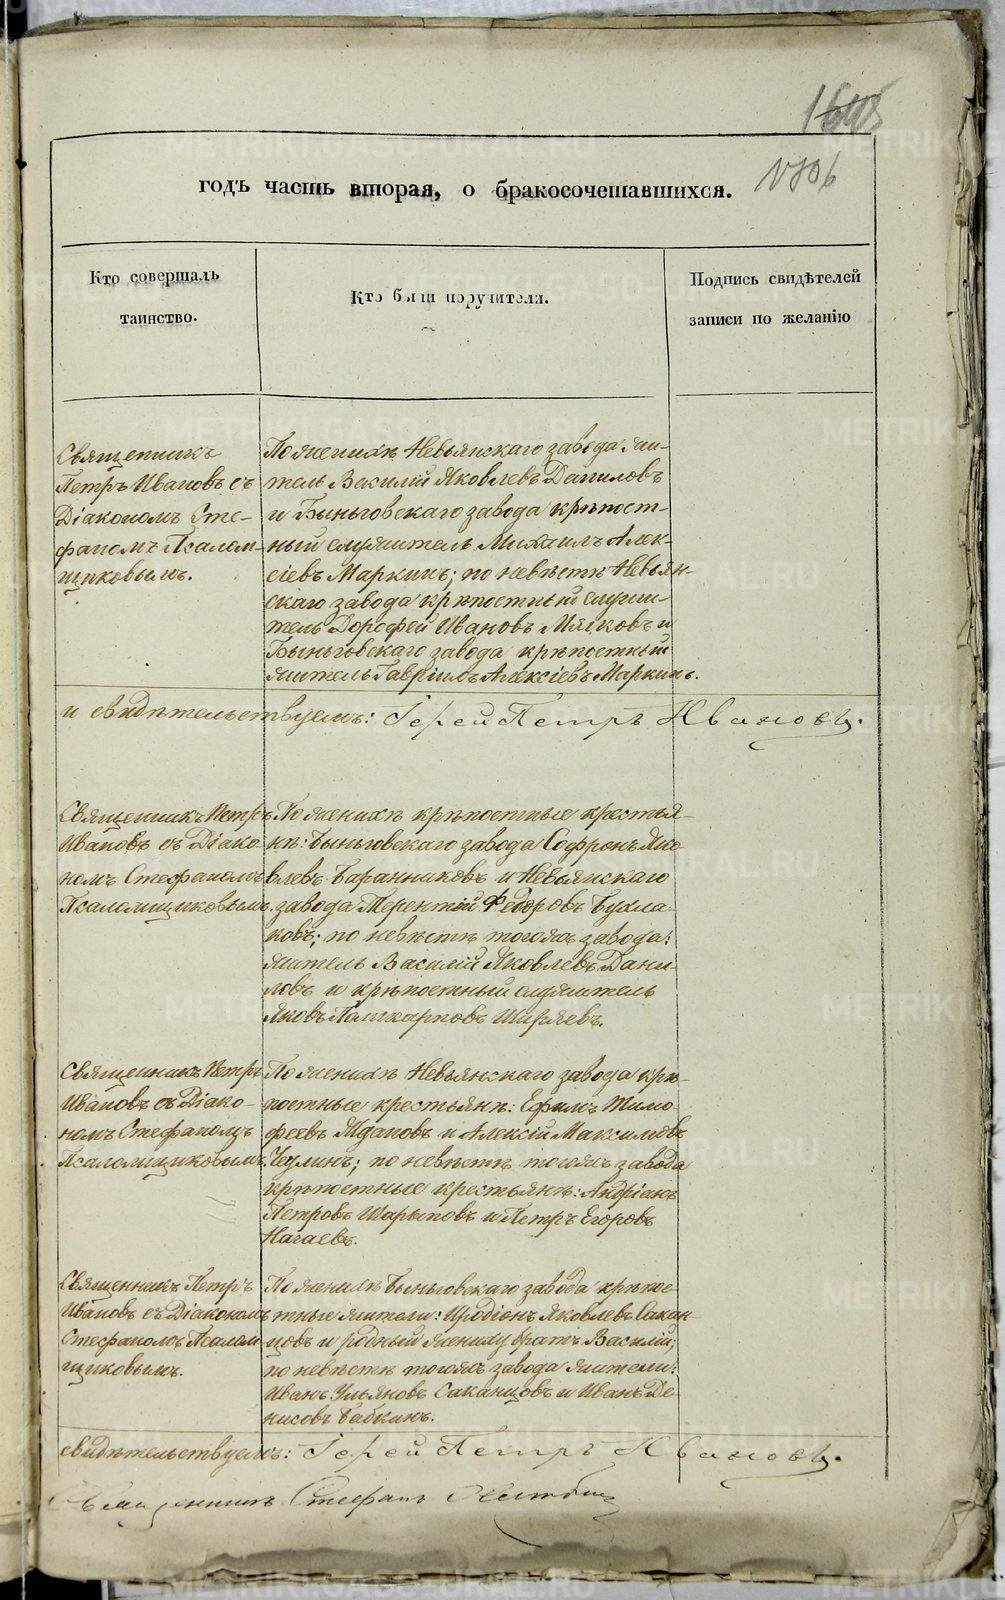 годъ часть вторая, о бракосочетавшихся.
Кто совершалъ
таинство.
Кто были поручители.
Подпись свидѣтелей
записи по желанію
Священникъ
Петръ Ивановъ съ
Діакономъ Сте-
фаномъ Псалом-
щиковымъ.
По женихѣ Невьянскаго завода жи-
тель Василій Яковлевъ Даниловъ
и Быньговскаго завода крѣпост-
ный служитель Михаилъ Алек-
сіевъ Маркинъ; по невѣстѣ Невьян-
скаго завода крѣпостный служи-
тель Дорофей Ивановъ Мячковъ и
Быньговскаго завода крѣпостный
житель Гавріилъ Алексіевъ Маркинъ.
и свидѣтельствуемъ: Іерей Петръ Ивановъ.
Священникъ Петръ
Ивановъ съ Діако-
номъ Стефаномъ
Псаломщиковымъ.
По женихѣ крѣпостные крестья-
нѣ: Быньговскаго завода Софронъ Яко-
влевъ Баранниковъ и Невьянскаго
завода Терентій Федоровъ Бухла-
ковъ; по невѣстѣ тогожъ завода:
житель Василій Яковлевъ Дани-
ловъ и крѣпостный служитель
Яковъ Поликарповъ Ширяевъ.
Священникъ Петръ
Ивановъ съ Діако-
номъ Стефаномъ
Псаломщиковымъ.
По женихѣ Невьянскаго завода крѣ-
постные крестьянѣ: Ефимъ Тимо-
феевъ Ждановъ и Алексій Максимовъ
по невѣстѣ тогожъ завода
крѣпостные крестьянѣ: Андріанъ
Петровъ Шарыповъ и Петръ Егоровъ
Нагаевъ.
Священникъ Петръ
Ивановъ съ Діакономъ
Стефаномъ Псалом-
щиковымъ.
По женихѣ Быньговскаго завода крѣпос-
тные жители: Иродіонъ Яковлевъ Сакан-
цовъ и родный жениху братъ Василій;
по невѣстѣ тогожъ завода жители:
Иванъ Ульяновъ Саканцовъ и Иванъ Де-
нисовъ Бабкинъ.
свидѣтельствуемъ: Іерей Петръ Ивановъ.
Священникъ Стефанъ
METRIKI.GASO-URAL.RU